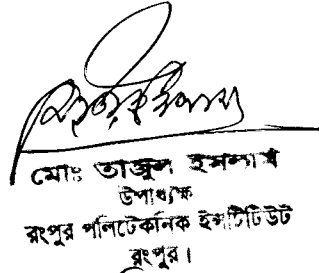 মোঃ তাজুল ইসলাম
উপাধ্যক্ষ
রংপুর পলিটেকনিক ইন্সটিটিউট
রংপুর।